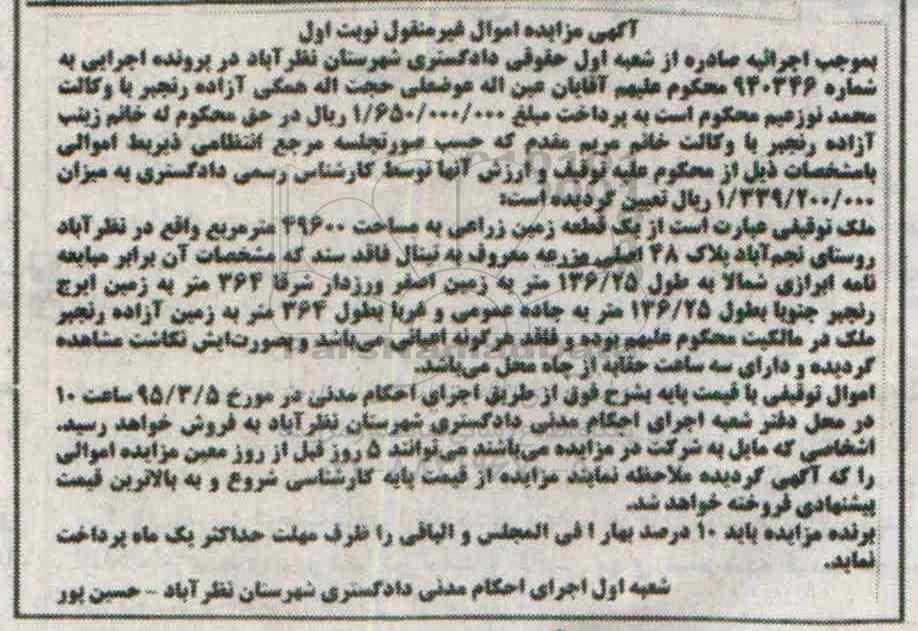 آگهی مزایده اموال غیرمنقول نوبت اول
بموجب اجرائیه صادره از شعبه اول حقوقی دادگستری شهرستان نظرآباد در پرونده اجرایی به
شماره ۹۴۰۳۴۶ محکوم علیهم آقایان عین اله عوضعلی حجت اله همگی آزاده رنجبر با وکالت
محمد نوزعیم محکوم است به پرداخت مبلغ ۱/۶۵۰/۰۰۰/۰۰۰ ریال در حق محکوم له خانم زینب
آزاده رنجبر با وکالت خانم مریم مقدم که حسب صورتجلسه مرجع انتظامی ذیربط اموالی
بامشخصات ذیل از محکوم علیه توقیف و ارزش آنها توسط کارشناس رسمی دادگستری به میزان
۱/۳۳۹/۲۰۰/۰۰۰ ریال تعیین گردیده است:
ملک توقیفی عبارت است از یک قطعه زمین زراعی به مساحت ۴۹۶۰۰ مترمربع واقع در نظرآباد
روستای نجم‌آباد پلاک ۴۸ اصلی مزرعه معروف به تیتال فاقد سند که مشخصات آن برابر مبایعه
نامه ابرازی شمالا به طول ۱۳۶/۲۵ متر به زمین اصغر ورزدار شرقا ۳۶۴ متر به زمین ایرج
رنجبر جنوبا بطول ۱۳۶/۲۵ متر به جاده عمومی و غربا بطول ۳۶۴ متر به زمین آزاده رنجبر
ملک در مالکیت محکوم علیهم بوده و فاقد هرگونه اعیانی می‌باشد و بصورت‌ایش نکاشت مشاهده
گردیده و دارای سه ساعت حقابه از چاه محل می‌باشد.
اموال توقیفی با قیمت پایه بشرح فوق از طریق اجرای احکام مدنی در مورخ ۹۵/۳/۵ ساعت ۱۰
در محل دفتر شعبه اجرای احکام مدنی دادگستری شهرستان نظرآباد به فروش خواهد رسید.
اشخاصی که مایل به شرکت در مزایده می‌باشند می‌توانند ۵ روز قبل از روز معین مزایده اموالی
را که آگهی گردیده ملاحظه نمایند مزایده از قیمت پایه کارشناسی شروع و به بالاترین قیمت
پیشنهادی فروخته خواهد شد.
برنده مزایده باید ۱۰ درصد بهار ا فی المجلس و الباقی را ظرف مهلت حداکثر یک ماه پرداخت
نماید.
شعبه اول اجرای احکام مدنی دادگستری شهرستان نظرآباد - حسین پور
ParsNamadData